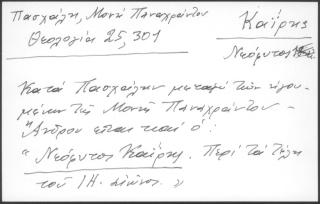 Πασχάλη, Μονή Παναχράντου
Θεολογία 25, 301
Καΐρης
Νεόφυτος
Κατά Πασχάλην μεταξύ των ηγου-
μένων της Μονής Παναχράντου -
Άνδρου είναι και ο:
"Νεόφυτος Καΐρης. Περί τα τέλη
του ΙΗ. αιώνος."